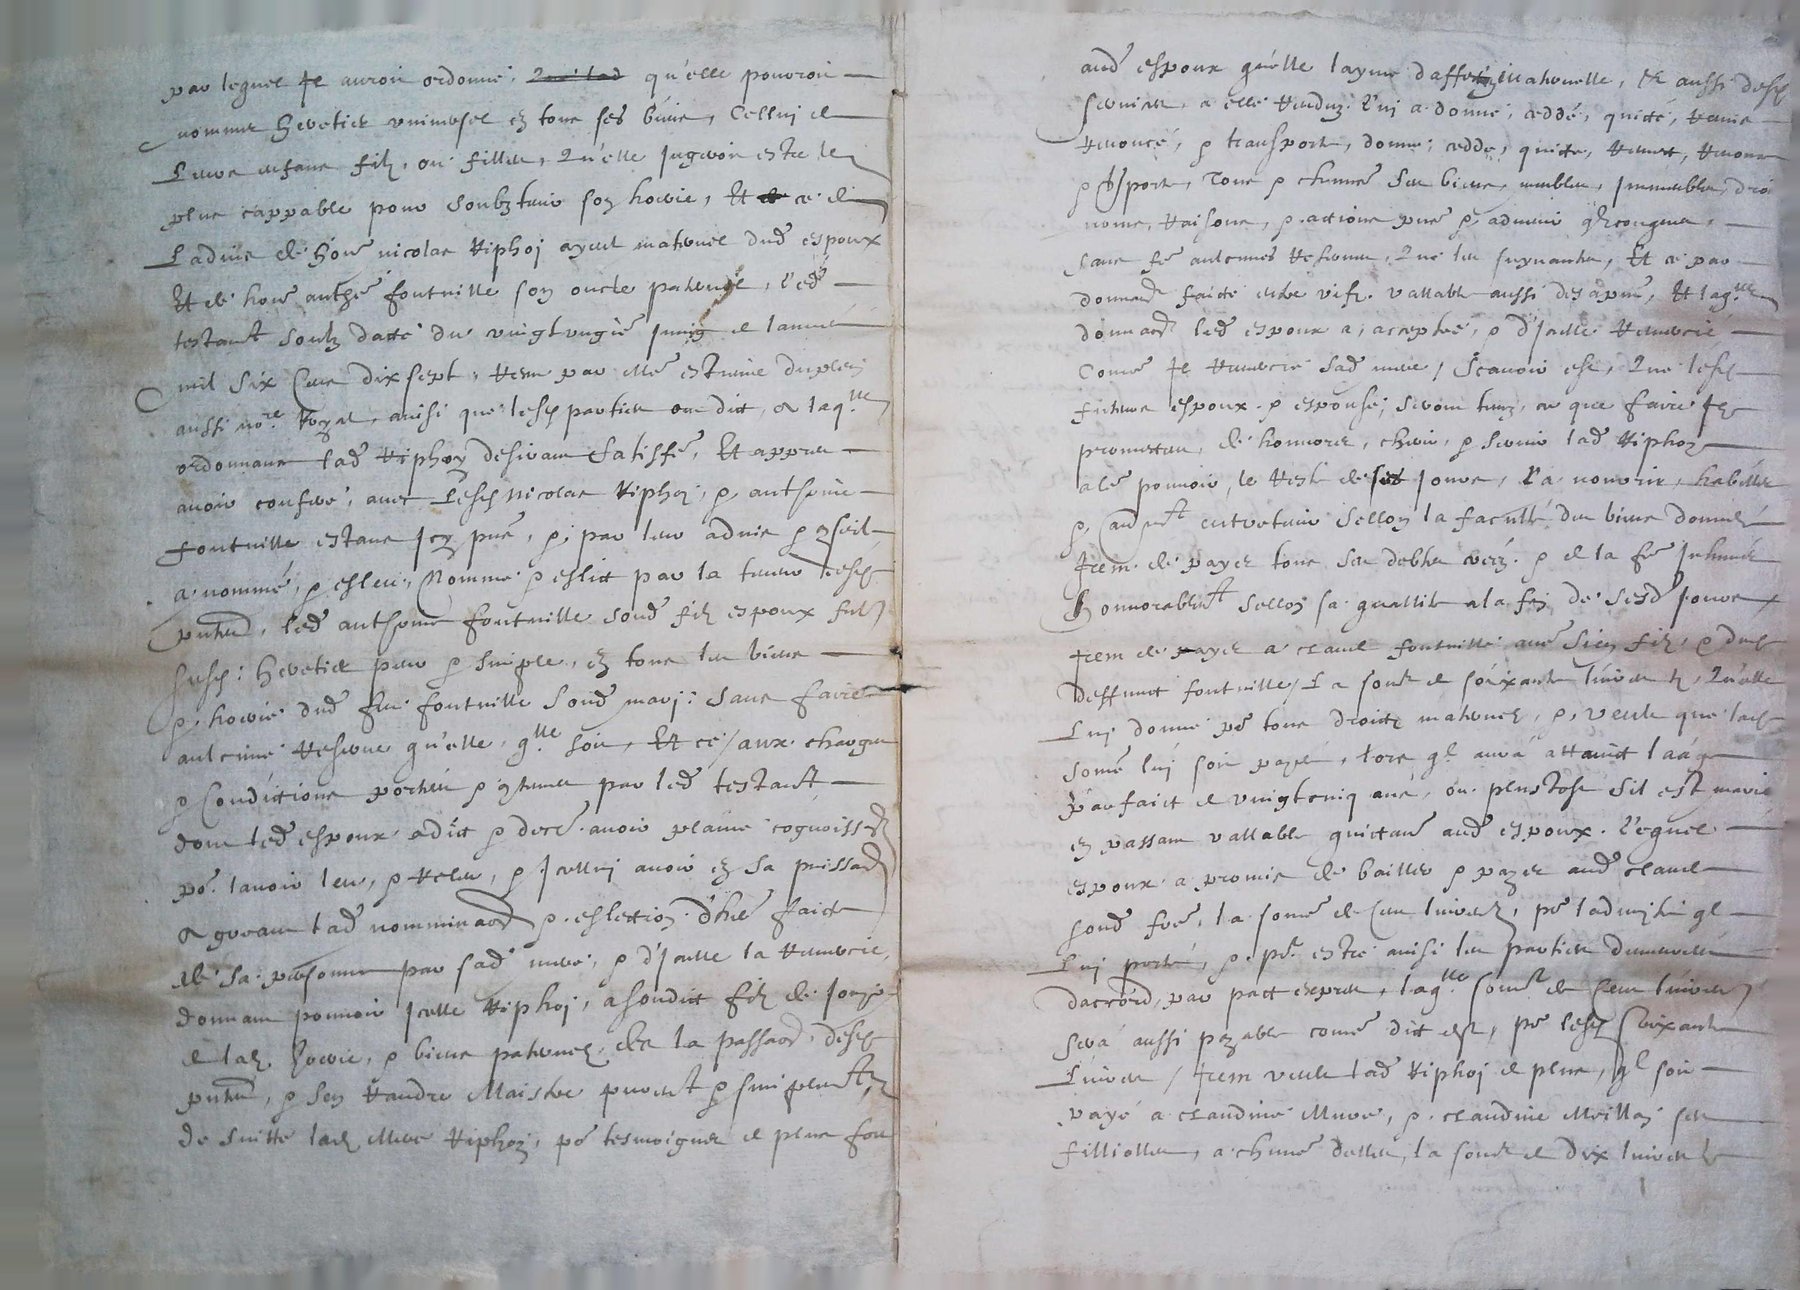 par lequel Il auroit ordonné, qu'elle pourroit
nommer heretier universel en tous ses biens, Celluy de
Leurs enfans filz, ou filles, Qu'elle Jugeroit estre le
plus cappable pour soubztenir son hoirie, Et ce de
L'advis de honne nicolas Riphoj ayeul maternel dud espoux
Et de honne anthe fontville son oncle paternel, led
testamt soubz datte du vingtungie Juing de l'année
mil six Cens dix sept, receu par Me estienne
aussi nore Royal, ainsi que lesd parties ont dict, a laqlle
ordonnance lad Riphoz desirant satisfe, Et appres
avoir conferé, avec Lesd Nicolas Riphoj, p anthoine
fontville estans Icy pnt, p par leur advis p conseil
a nommé, p esleu, Nomme p eslict par la teneur desd
pntes, led anthoine fontville sond filz espoux
susd: heretier pur p simple, en tous les biens
p hoirie dud feu fontville sond mary: sans faire
aulcune reserve qu'elle qlle soit, Et ce, aux charges
p Condictions portées p contenues par led testamt
dont led espoux a dict p decré avoir plaine cognoissce
po l'avoir leu, p releu, p Icelluj avoir en sa puissance
agreant lad nomminaon p eslection d'hoire faicte
de sa personne par sad mere, p d'Icelle la remercie,
donnant pouvoir Icelle Riphoj, a sondict filz de Jouyr
de lad hoirie, p biens paternelz, des la passaon desd
pntes, p s'en rendre Maistre purement p simplement
De suitte lad Mere Riphoz, po tesmoigner de plus fort
aud espoux qu'elle l'ayme d'affection maternelle, Et aussi desd
services a elle renduz, luy a donné, ceddé, quitté, remis
renoncé, p transporté, donne, cedde, quitte, remet, renonce
p tsporte, Tous p chune ses biens, meubles, Immeubles, droi
noms, raisons, p actions pns p advenir qlconques,
sans fe aulcunes reserves, Que les suyvantes, Et ce par
donnaon faicte entre vifz vallable aussi desapns, Et laqlle
donnaon led espoux a accepté, p d'Icelle remercié
Come Il remercie sad mere, Scavoir est, Que lesd
futturs espoux p espouse, seront tenuz, ce que faire Ilz
promettent, de honnorer, cherir, p servir lad Riphoz
a leur pouvoir, le reste de ses jours, La nourrir, habiller
p aultremt entretenir sellon la faculté des biens donnés
Item de payer tous ses debtes p de la fe Inhumer
honnorablemt sellon sa quallité a la fin de sesd jours
Item de payer a claude fontville aue sien filz, p dud
deffunct fontville, La some de soixante livres tz, Qu'elle
Luj donne po tous droictz maternelz, p, veult que lad
some luj soit payée, lors ql aura attainct laage
parfaict de vingtcinq ans, ou plustost sil est marie
en passant vallable quictance aud espoux. Lequel
espoux a promis de bailler p payer aud claude
sond fre, la some de Cent livres tz, po
Luj porter, p po estre ainsi les parties demeurées
daccord, par pact expres, laqlle some de Cent livres tz
sera aussi payable come dict est, po lesd Soixante
Livres, Item veult lad Riphoj de plus, ql soit
payé a claudine Mure, p claudine Meillaz ses
filliolles, a chune delles, la some de Dix livres tz